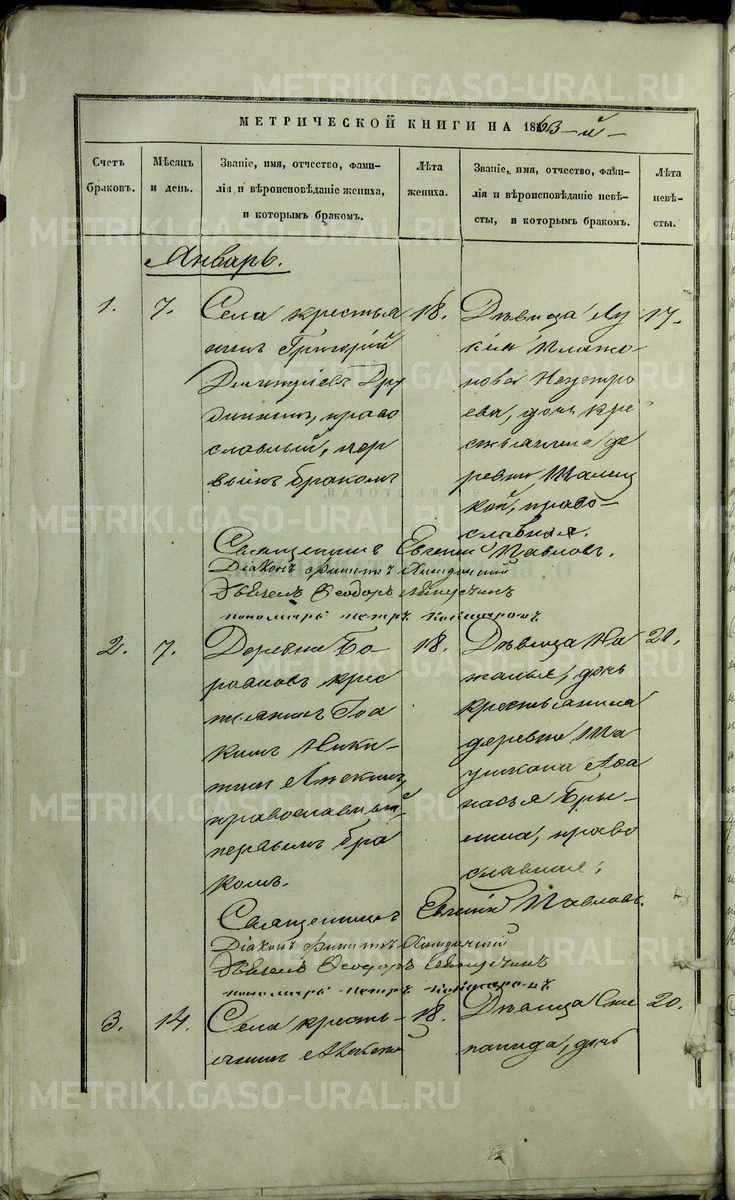 METRIKI.GASO-URAL.RU
МЕТРИЧЕСКОЙ КНИГИ НА 1863-й
Счетъ браковъ.
Мѣсяцъ и день.
Званіе, имя, отчество, фами-
лія и вѣроисповѣданіе жениха,
и которымъ бракомъ.
Лѣта жениха.
Званіе, имя, отчество, фами-
лія и вѣроисповѣданіе невѣ-
сты, и которымъ бракомъ.
Лѣта невѣ-
сты.
Январь.
1.
7.
Села крестья
нинъ Григорій
православный, пер
вымъ бракомъ
18.
Дѣвица Лу
кія Плато
нова
дочь кре
стьянина де
ревни Талиц
кой, право-
славная.
17.
Священникъ Евгеній Павловъ.
Діаконъ
Ѳеодоръ
пономарь Петръ
2.
7.
Деревни Бо
ровковъ крес
тьянинъ Іоа
кимъ Ники-
тин
православный
первымъ бра
комъ.
18.
Дѣвица На
талья, дочь
крестьянина
деревни Та
ушкана Аѳа
насья Бры-
лина, право
славная,
21.
Священникъ Евгеній Павловъ.
Діаконъ
Ѳеодоръ
пономарь Петръ
3.
14.
Села кресть-
янинъ Алексѣй
18.
Дѣвица Сте
панида, дочь
20.